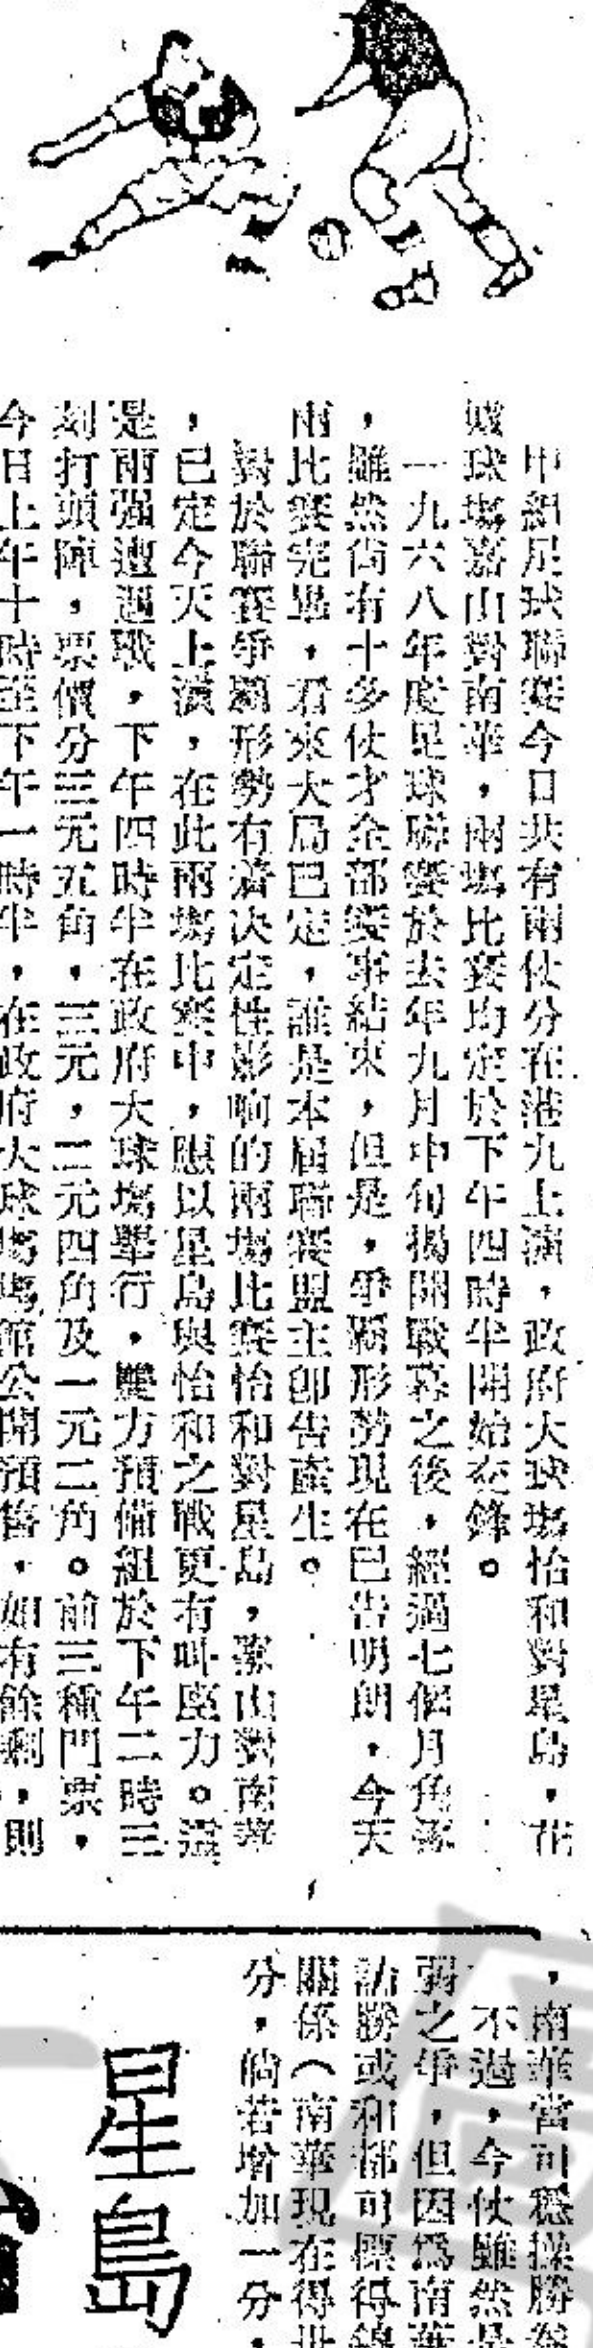 甲組足球聯賽今日共有兩仗分在港九上演，政府大球場怡和對星島，花
墟球塲嘉山對南華，兩塲比賽均定於下午四時半開始交鋒。
一九六八年度足球聯賽於去年九月中旬揭開戰幕之後，經過七個月角逐
，雖然尚有十多仗才全部賽事結束，但是，爭覇形勢現在已告明朗，今天
兩比賽完畢，看來大局已定，誰是本屆聯賽盟主卽告產生。
對於聯賽爭覇形勢有着決定性影响的兩塲比賽怡和對星島，嘉山對南華
，已定今天上演，在此兩塲比賽中，應以星島與怡和之戰更有叫座力。這
是兩强遭遇戰，下午四時半在政府大球塲舉行，雙力預備組於下午二時三
刻打頭陣，票價分三元五角，三元，二元四角及一元二角。前三種門票，
今日上午十時至下午一時半，在政府大球塲塲館公開預售，如有餘剩，則
，南華當可穩操勝
不過，今仗雖然是
弱之爭，但因爲南華
勝或和都可
關係（南華現在得
分，倘若增加一分，
星島